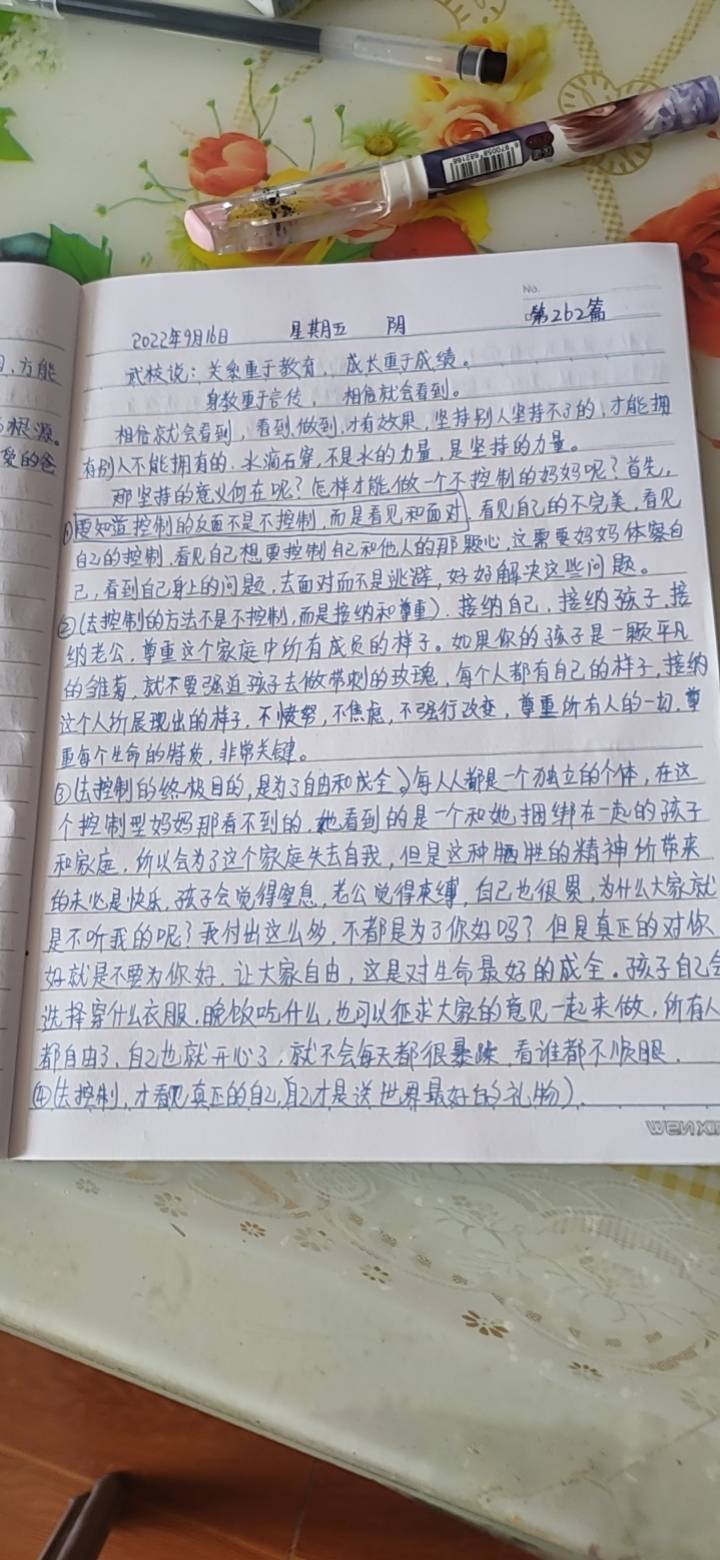 No.
2022年9月16日 星期五 阴 第262篇
武校说：关系重于教育，成长重于成绩。
身教重于言传，相信就会看到。
相信就会看到，看到，做到，才有效果，坚持别人坚持不了的，才能拥
有别人不能拥有的，水滴石穿，不是水的力量，是坚持的力量。
那坚持的意义何在呢？怎样才能做一个不控制的妈妈呢？首先，
①要知道控制的反面不是不控制，而是看见和面对，看见自己的不完美，看见
自己的控制，看见自己想要控制自己和他人的那颗心，这需要妈妈体察自
己，看到自己身上的问题，去面对而不是逃避，好好解决这些问题。
②(去控制的方法不是不控制，而是接纳和尊重)．接纳自己，接纳孩子，接
纳老公，尊重这个家庭中所有成员的样子。如果你的孩子是一颗平凡
的雏菊，就不要强迫孩子去做带刺的玫瑰，每个人都有自己的样子，接纳
这个人所展现出的样子，不愤怒，不焦虑，不强行改变，尊重所有人的一切，尊
重每个生命的特质，非常关键。
③(去控制的终极目的，是为了自由和成全。)每人人都是一个独立的个体，在这
个控制型妈妈那看不到的，她看到的是一个和她捆绑在一起的孩子
和家庭，所以会为了这个家庭失去自我，但是这种牺牲的精神所带来
的未必是快乐，孩子会觉得窒息，老公觉得束缚，自己也很累，为什么大家就
是不听我的呢？我付出这么多，不都是为了你好吗？但是真正的对你
好就是不要为你好，让大家自由，这是对生命最好的成全。孩子自己会
选择穿什么衣服，晚饭吃什么，也可以征求大家的意见一起来做，所有人
都自由了，自己也就开心了，就不会每天都很暴躁，看谁都不顺眼．
④(去控制，才看见真正的自己，自己才是送世界最好的礼物)．
，方能
根源。
爱的爸
6970058 682166